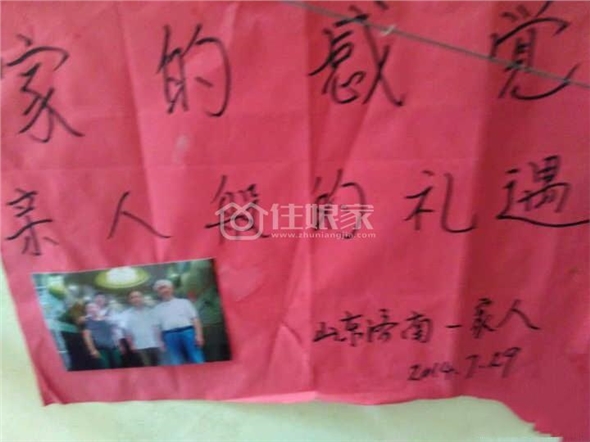 家的感觉
亲人般的礼遇
住娘家
www.zhuniangjia.com
山东济南一家人
2014.7.29